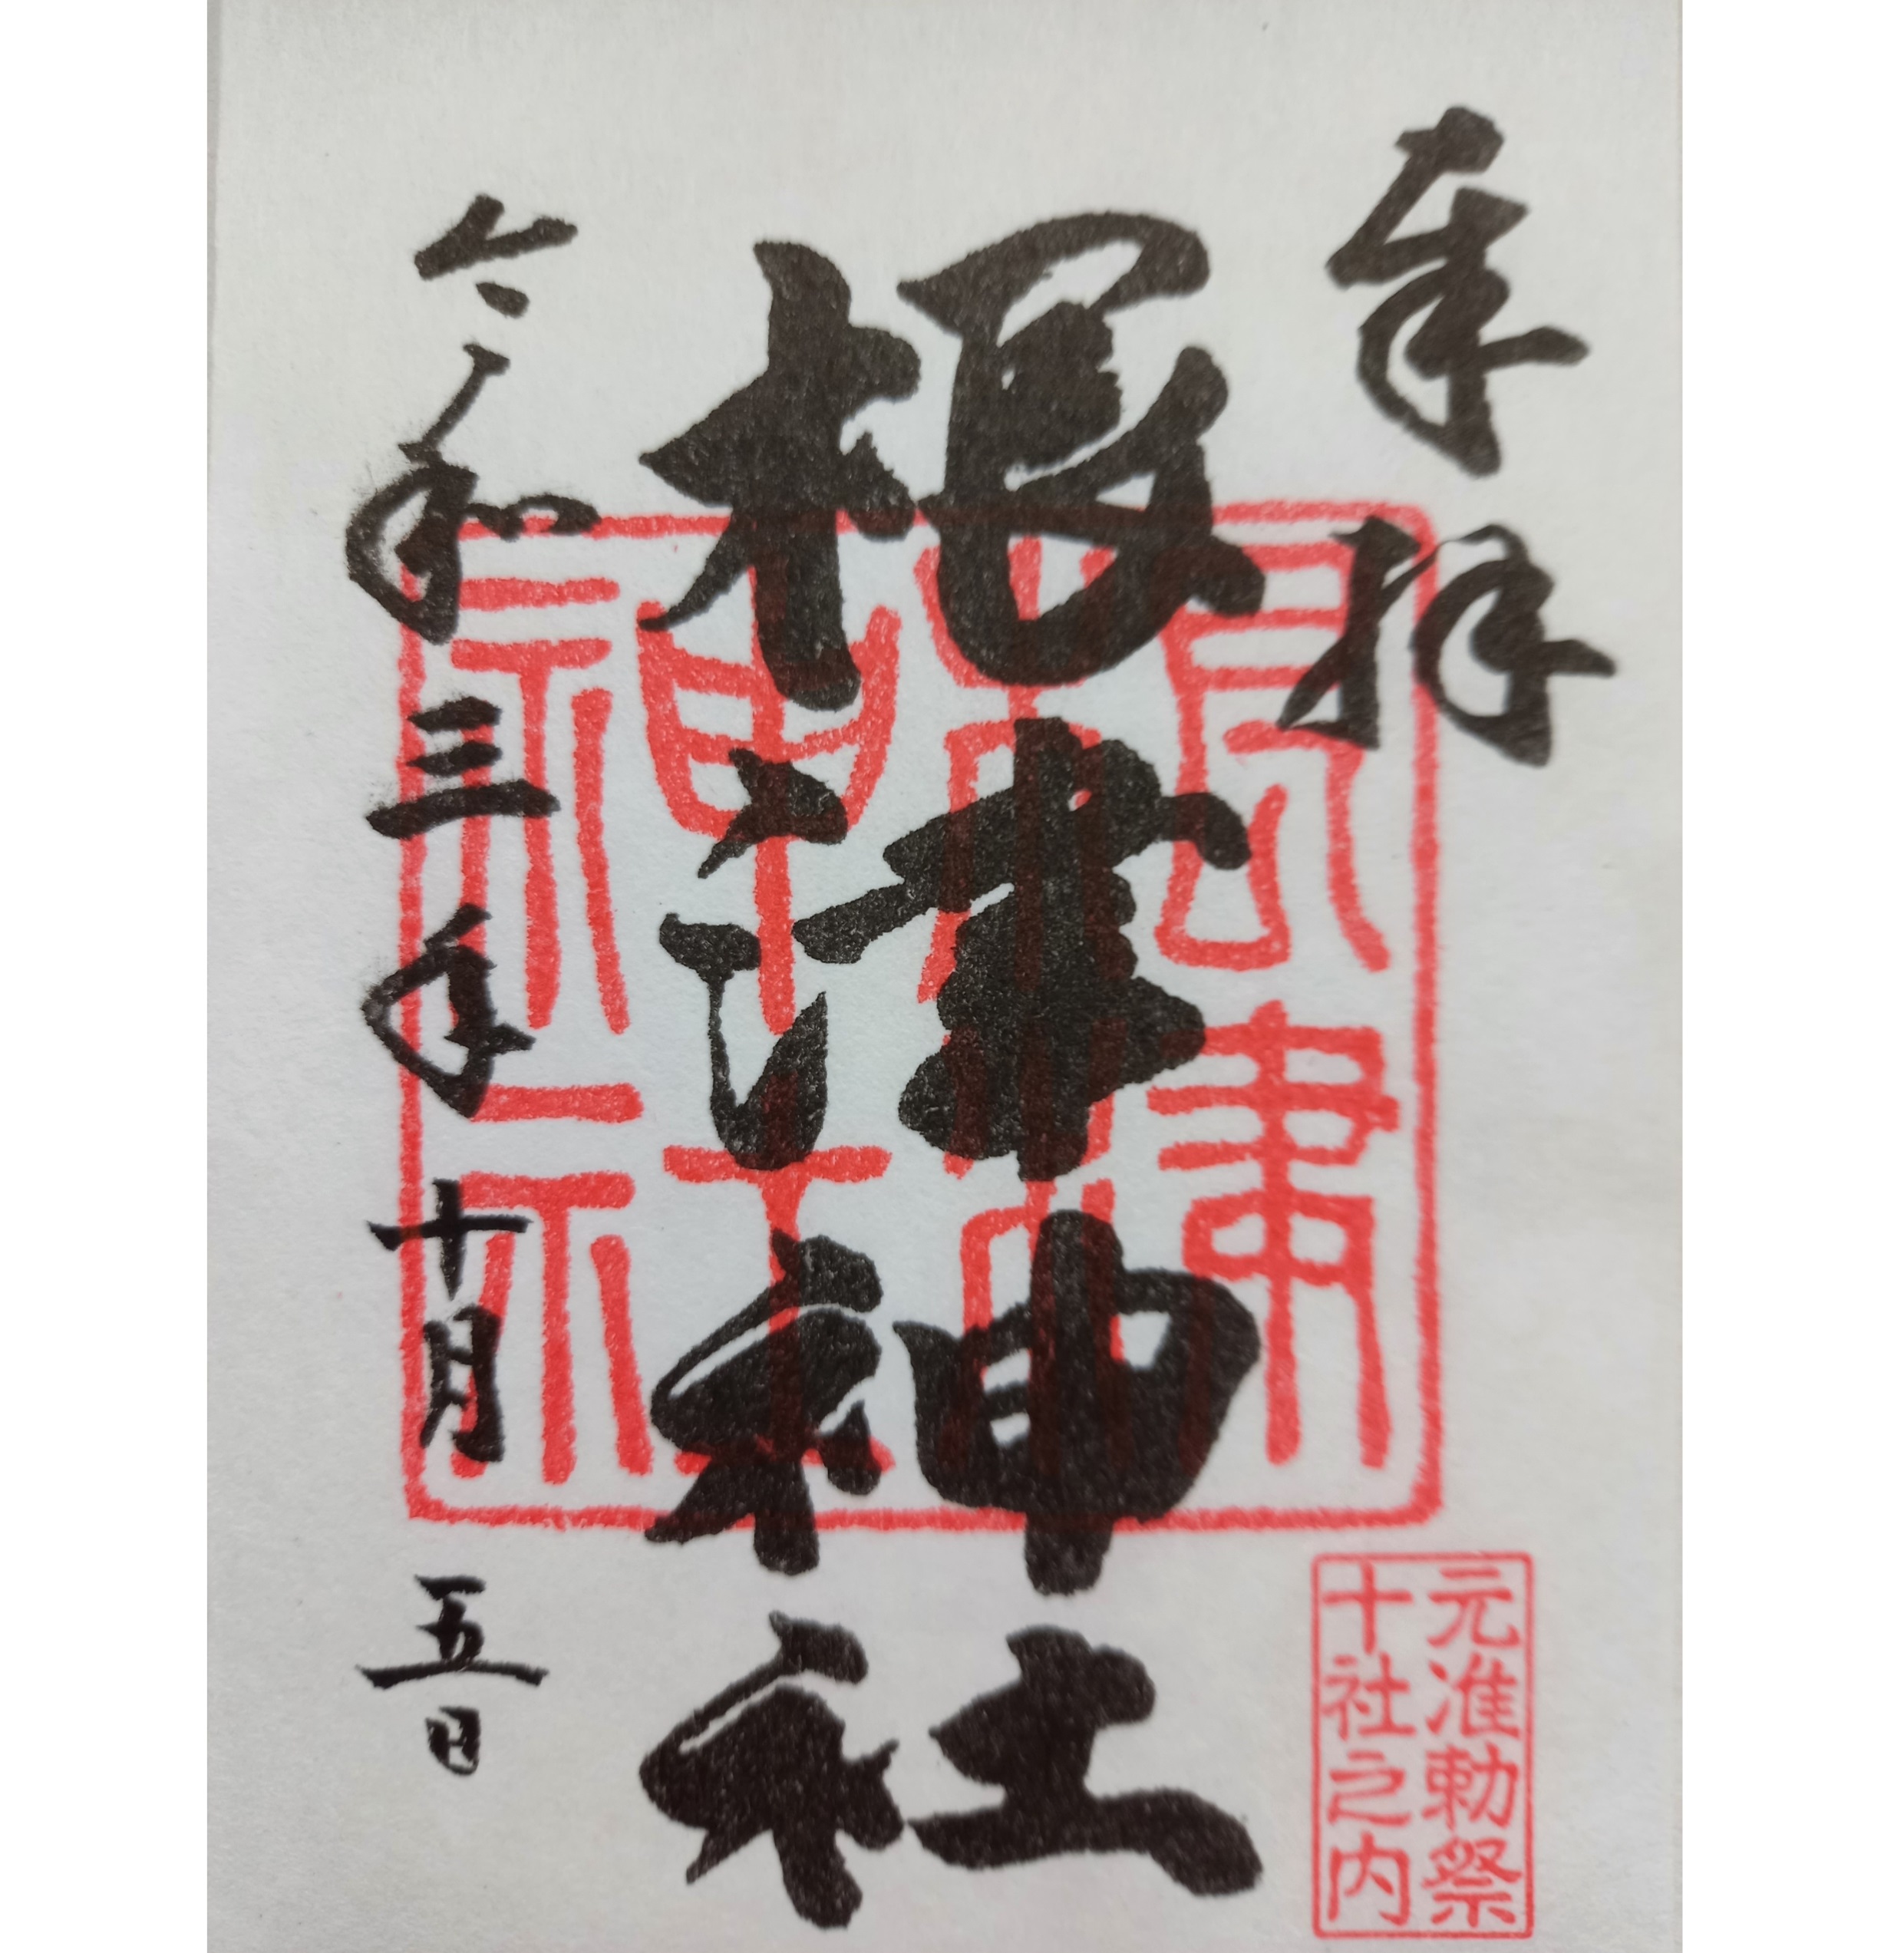 奉拝
根津神社
令和三年十月五日
根津神社
元准勅祭
十社之内